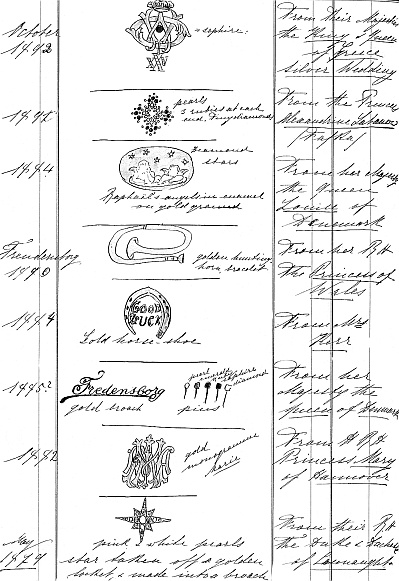 October
1892
saphire.
From their Majesties
the King & Queen
of Greece
Silver Wedding
pearls
3 rubies at each
end. Tiny diamonds
From the Princess
Alexandrine
diamond
stars
1884
Raphael's angels in enamel
on gold ground
From her Majesty
the Queen
Louise of
Denmark
Fredensborg
1890
golden hunting
horn bracelet
From her R H
the Princess of
Wales
GOOD
LUCK
Gold horse-shoe
From Mrs
1885?
Fredensborg
gold broach
pearl
emerald
saphire
diamond
pins
From her
Majesty the
queen of Denmark
1882
gold
monogramme
From H R H
Princess Mary
of Hannover
May
1879
pink & white pearls
star taken off a golden
locket, & made into a broach
From their R H
the Duke & Duchess
of Connaught